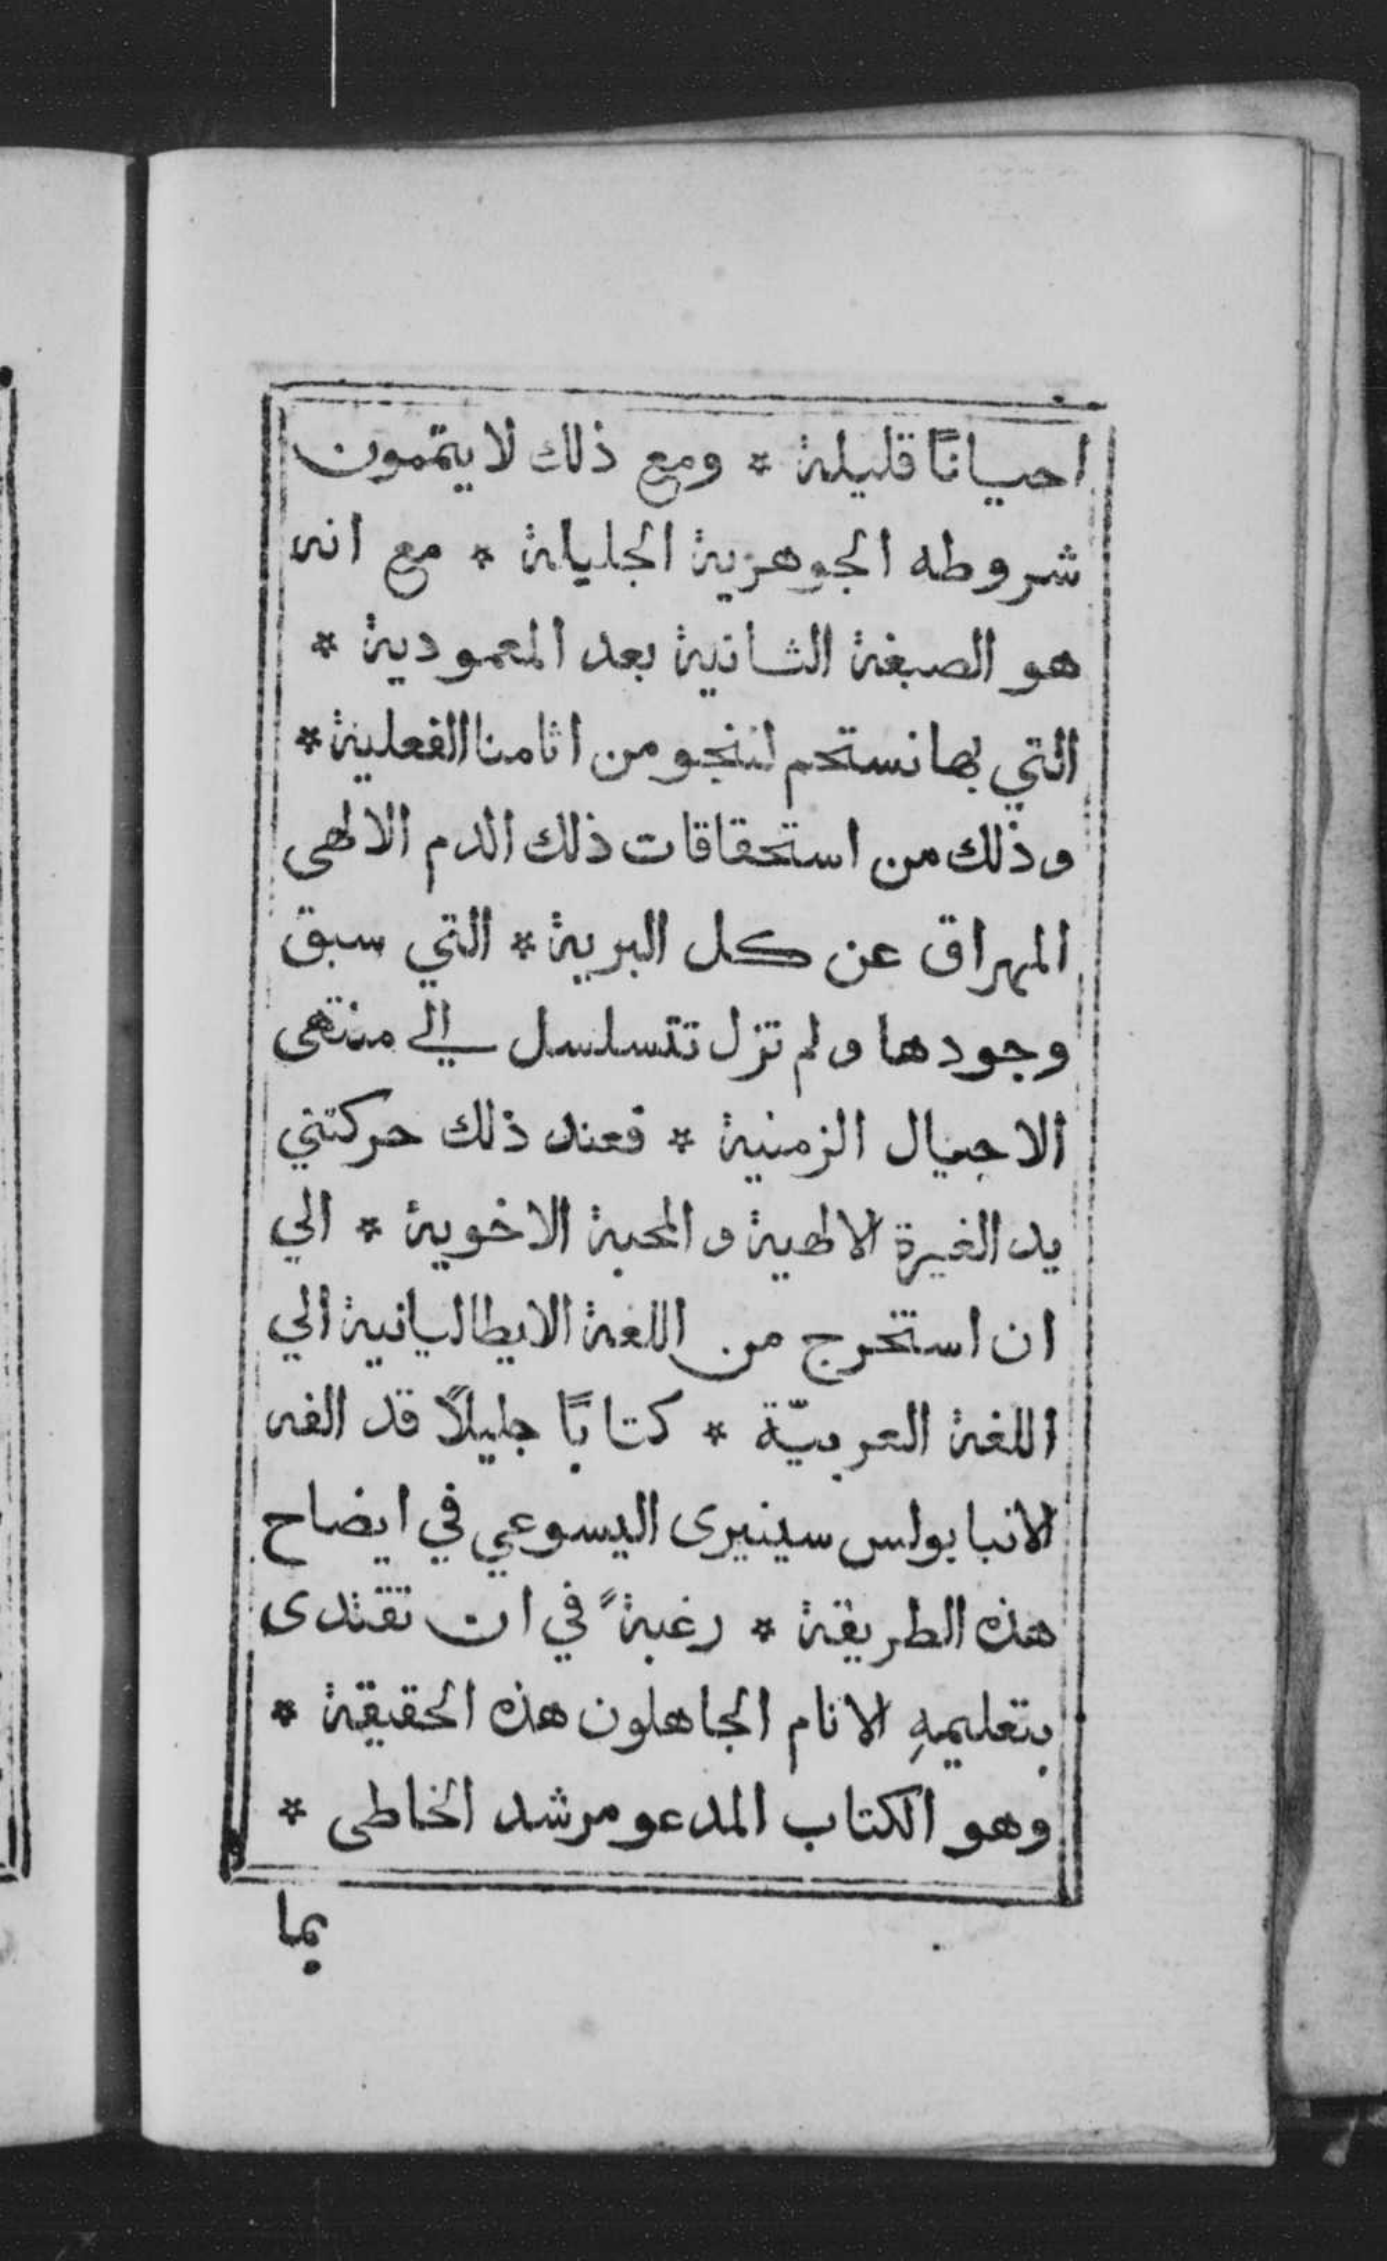 احيانًا قليلة * ومع ذلك لا يتممون
شروطه الجوهرية الجليلة * مع انه
هو الصبغة الثانية بعد المعمودية *
التي بها نستحم لننجو من اثامنا الفعلية *
وذلك من استحقاقات ذلك الدم الالهى
المهراق عن كل البرية * التي سبق
وجودها ولم تزل تتسلسل الي منتهى
الاجيال الزمنية * فعند ذلك حركتني
يد الغيرة الالهية والمحبة الاخوية * الي
ان استخرج من اللغة الايطاليانية الي
اللغة العربيّة * كتابًا جليلًا قد الفه
الانبا بولس سينيرى اليسوعي في ايضاح
هذه الطريقة * رغبةً في ان تقتدى
بتعليمهِ الانام الجاهلون هذه الحقيقة *
وهو الكتاب المدعو مرشد الخاطى *
بما